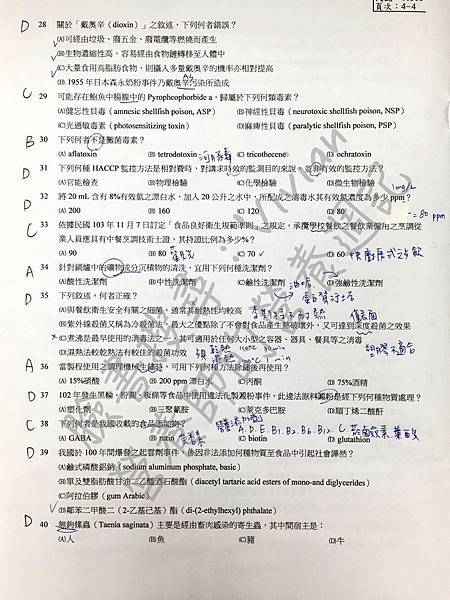 頁次：4-4
D 28 關於「戴奧辛（dioxin）」之敘述，下列何者錯誤？
(A)可經由垃圾、廢五金、廢電纜等燃燒而產生
(B)生物濃縮性高，容易經由食物鏈轉移至人體中
(C)大量食用高脂肪食物，則攝入多量戴奧辛的機率亦相對提高
(D) 1955 年日本森永奶粉事件乃戴奧辛污染所造成
As
C 29 可能存在鮑魚中腸腺中的 Pyropheophorbide a，歸屬於下列何類毒素？
(A)健忘性貝毒（amnesic shellfish poison, ASP） (B)神經性貝毒（neurotoxic shellfish poison, NSP）
(C)光過敏毒素（photosensitizing toxin） (D)麻痺性貝毒（paralytic shellfish poison, PSP）
B 30 下列何者不是黴菌毒素？
(A) aflatoxin (B) tetrodotoxin 河豚毒 (C) tricothecene (D) ochratoxin
D 31 下列何種 HACCP 監控方法是相當費時，對講求時效的監測目的來說，並非有效的監控方法？
(A)官能檢查 (B)物理檢驗 (C)化學檢驗 (D)微生物檢驗
1mg/L
D 32 將 20 mL 含有 8%有效氯之漂白水，加入 20 公升之水中，所配成之消毒水其有效氯濃度為多少 ppm？
(A) 200 (B) 160 (C) 120 (D) 80 = 80 ppm
C 33 依據民國 103 年 11 月 7 日訂定「食品良好衛生規範準則」之規定，承攬學校餐飲之餐飲業僱用之烹調從
業人員應具有中餐烹調技術士證，其持證比例為多少%？
(A) 90 (B) 80 觀光 (C) 70 (D) 60
A 34 針對鍋爐中的礦物成分沉積物的清洗，宜用下列何種洗潔劑？
(A)酸性洗潔劑 (B)中性洗潔劑 (C)鹼性洗潔劑 (D)強鹼性洗潔劑
油垢
D 35 下列敘述，何者正確？
(A)與餐飲衛生安全有關之細菌，通常其耐熱性均較高
(B)紫外線殺菌又稱為冷殺菌法，最大之優點除了不會對食品產生熱破壞外，又可達到深度殺菌之效果
(C)煮沸是最早使用的消毒法之一，其可適用於任何大小型之容器、器具、餐具等之消毒
塑膠不適合
(D)濕熱法較乾熱法有較佳的殺菌功效
A 36 當製程使用之調理機械生鏽時，可用下列何種方法除鏽後再使用？
(A) 15%硝酸 (B) 200 ppm 漂白水 (C)丙酮 (D) 75%酒精
D 37 102 年發生黑輪、粉圓、板條等食品中使用違法化製澱粉事件，此違法原料澱粉是經下列何種物質處理？
(A)塑化劑 (B)三聚氰胺 (C)萊克多巴胺 (D)順丁烯二酸酐
C 38 下列何者是我國收載的食品添加物？
(A) GABA (B) rutin (C) biotin (D) glutathion
D 39 我國於 100 年間爆發之起雲劑事件，係因非法添加何種物質至食品中引起社會譁然？
(A)鹼式磷酸鋁鈉（sodium aluminum phosphate, basic）
(B)單及雙脂肪酸甘油二乙醯酒石酸酯（diacetyl tartaric acid esters of mono-and diglycerides）
(C)阿拉伯膠（gum Arabic）
(D)鄰苯二甲酸二（2-乙基己基）酯（di-(2-ethylhexyl) phthalate）
D 40 無鉤絛蟲（Taenia saginata）主要是經由畜肉感染的寄生蟲，其中間宿主是：
(A)人 (B)魚 (C)豬 (D)牛